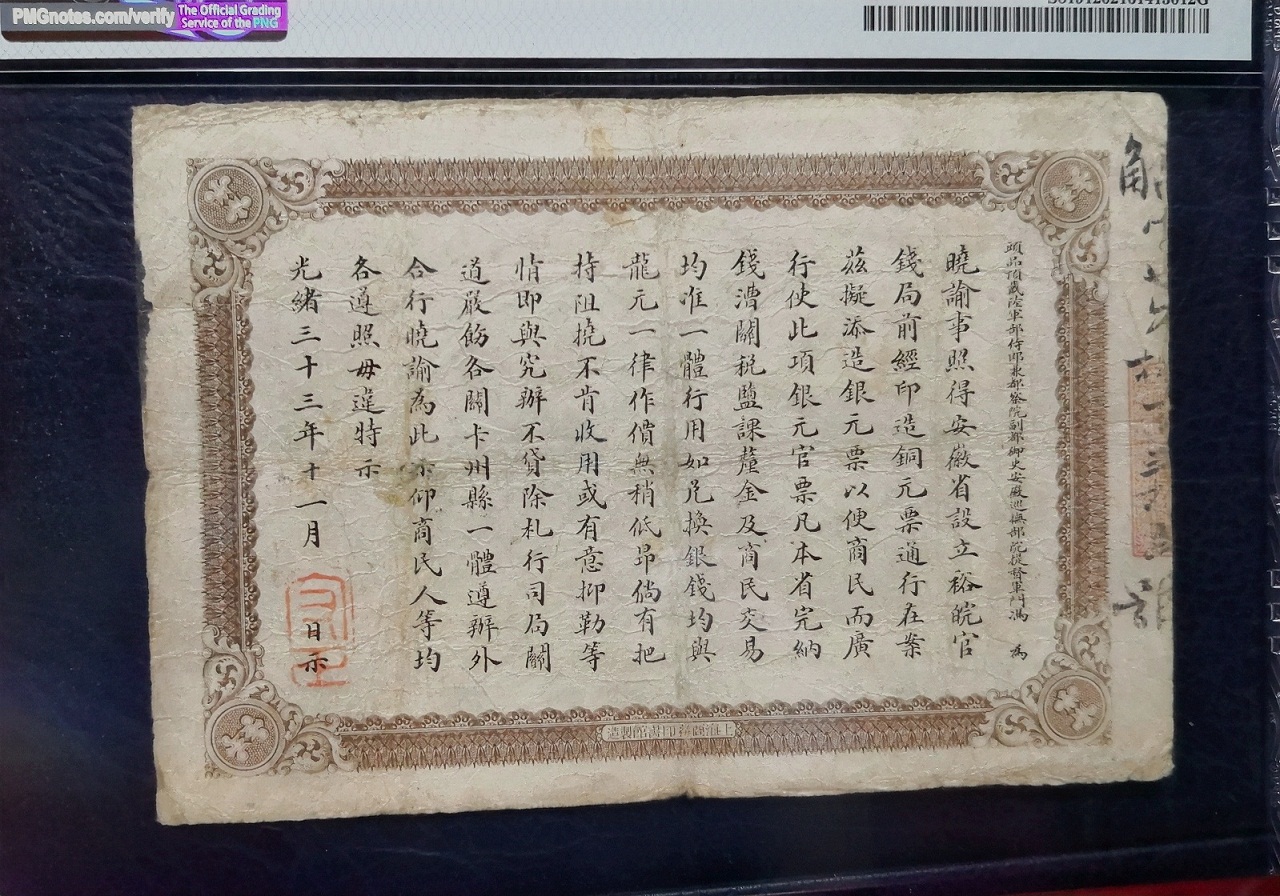 PMGnotes.com/verify
The Official Grading
Service of the PNG
頭品頂戴陸軍部侍郎兼都察院副都御史安徽巡撫部院提督軍門馮 為
曉諭事照得安徽省設立裕皖官
錢局前經印造銅元票通行在案
茲擬添造銀元票以便商民而廣
行使此項銀元官票凡本省完納
錢漕關稅鹽課釐金及商民交易
均准一體行用如兌換銀錢均與
龍元一律作價無稍低昂倘有把
持阻撓不肯收用或有意抑勒等
情即與究辦不貸除札行司局關
道嚴飭各關卡州縣一體遵辦外
合行曉諭為此示仰商民人等均
各遵照毋違特示
光緒三十三年十一月 日示
上海商務印書館製造